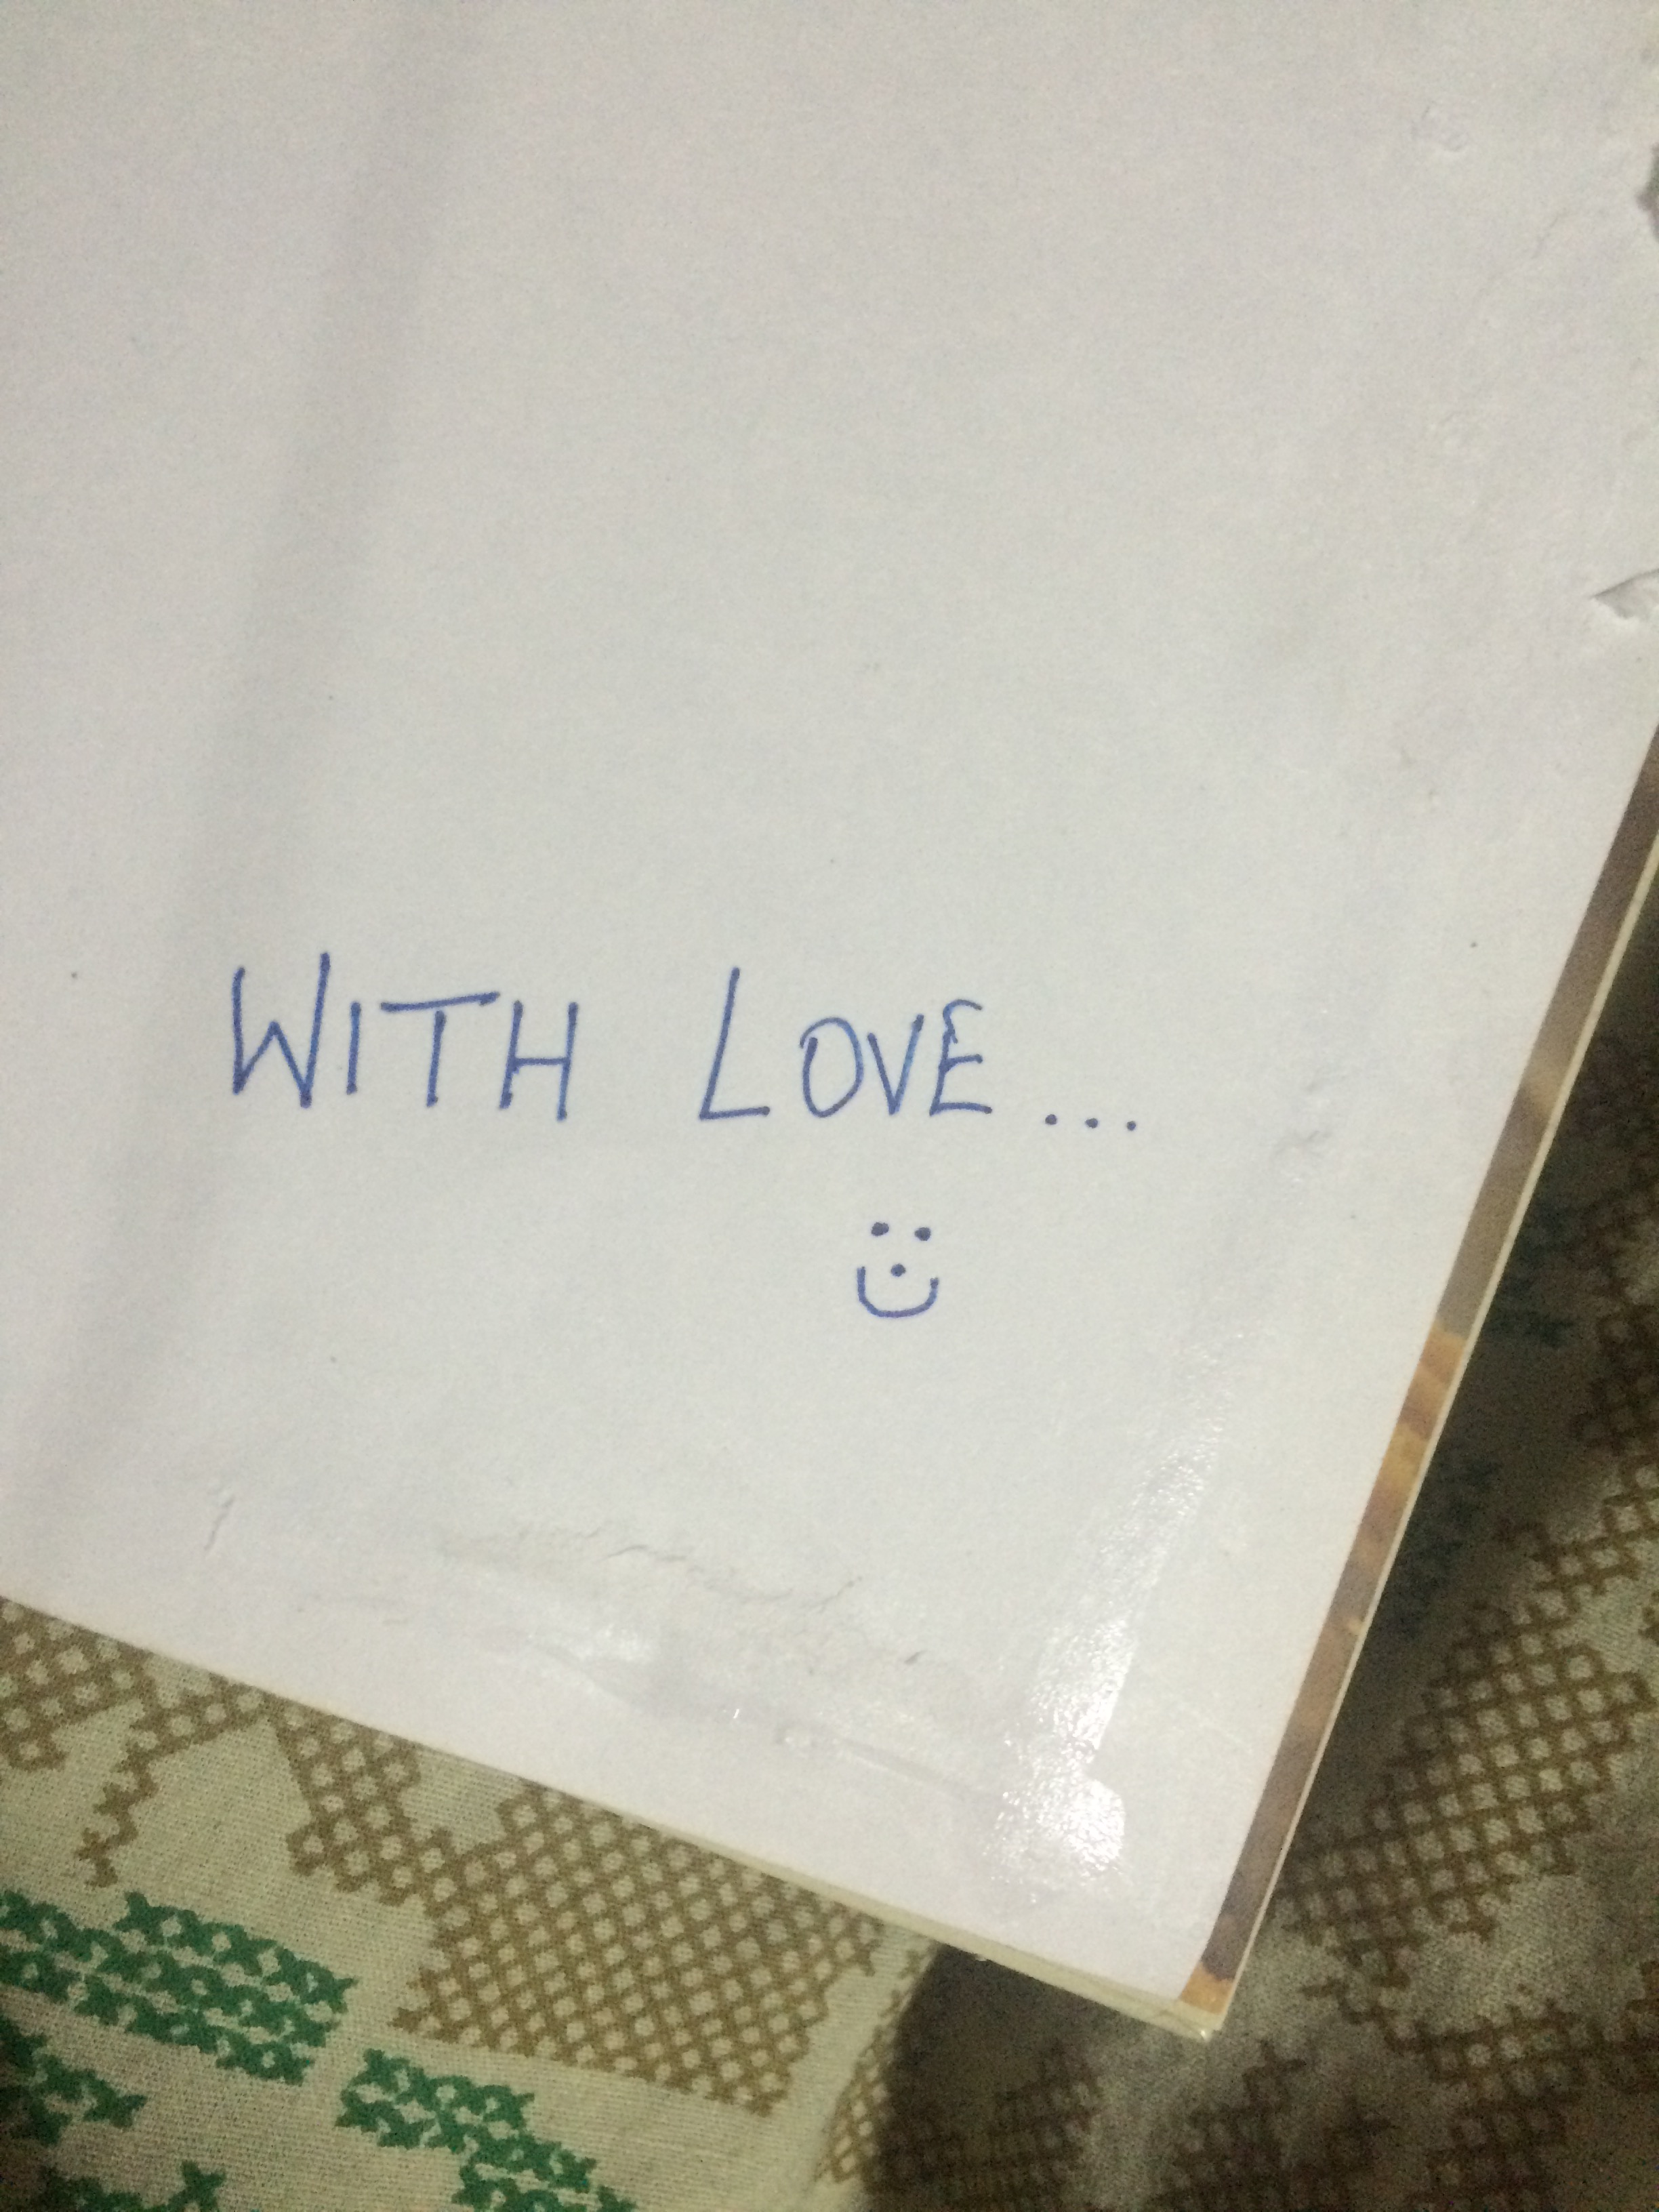 WITH LOVE...